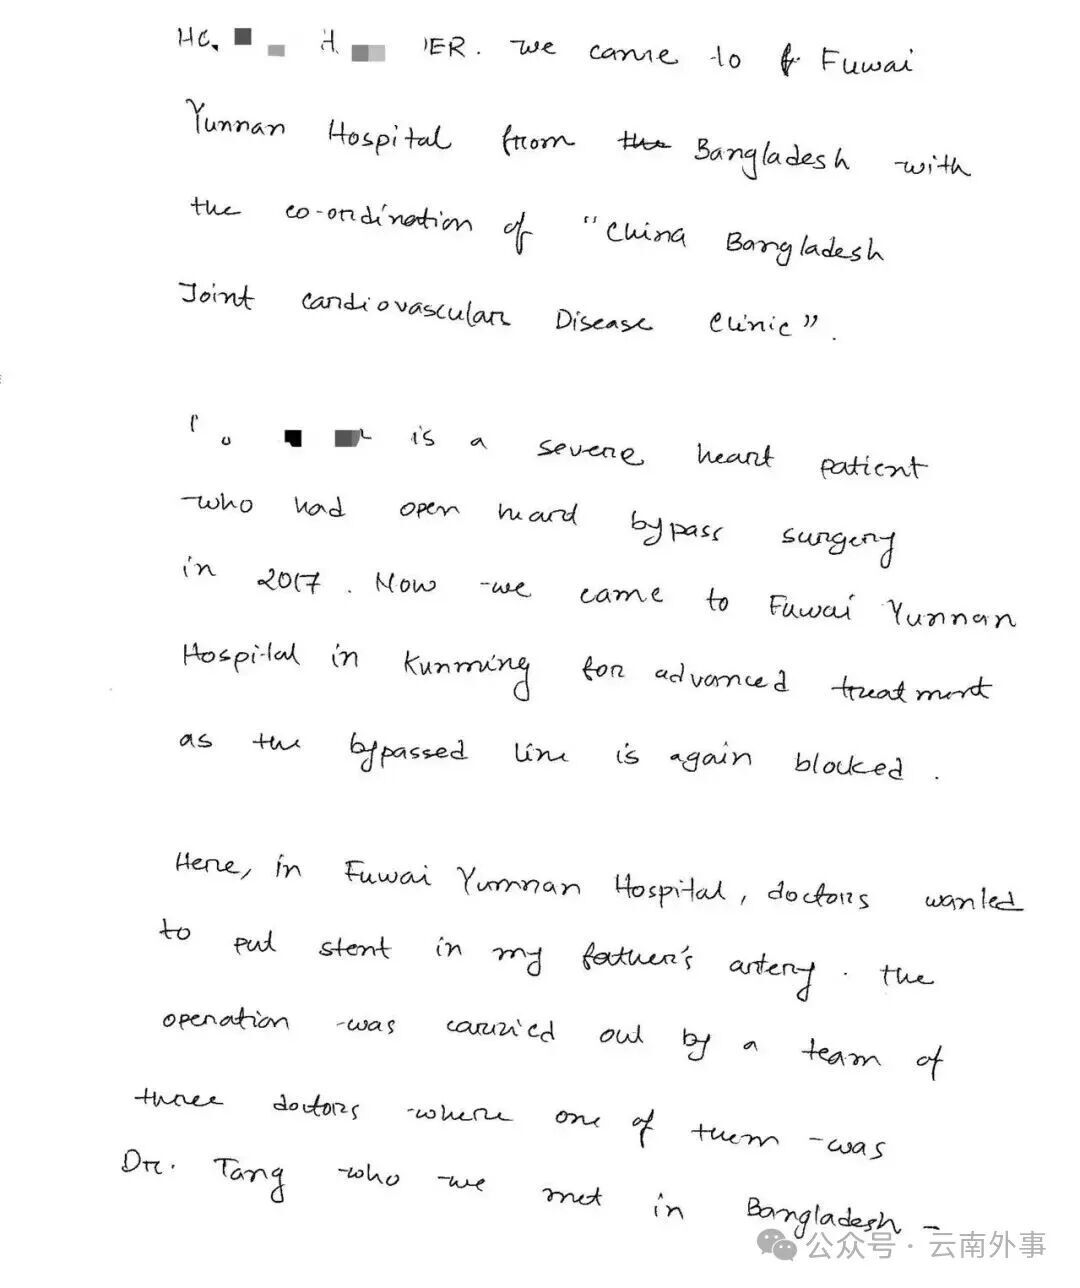 we came to Fuwai
Yunnan Hospital from the Bangladesh with
the co-ordination of "China Bangladesh
Joint cardiovascular Disease Clinic".
is a severe heart patient
who had open heard bypass surgery
in 2017. Now we came to Fuwai Yunnan
Hospital in Kunming for advanced treatment
as the bypassed line is again blocked.
Here, in Fuwai Yunnan Hospital, doctors wanted
to put stent in my father's artery. the
operation was carried out by a team of
three doctors where one of them was
Dr. Tang who we met in Bangladesh -
公众号·云南外事